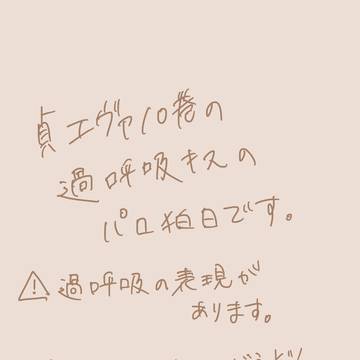 貞エヴァ10巻の
過呼吸キスの
パロ狛日です。
⚠過呼吸の表現が
あります。